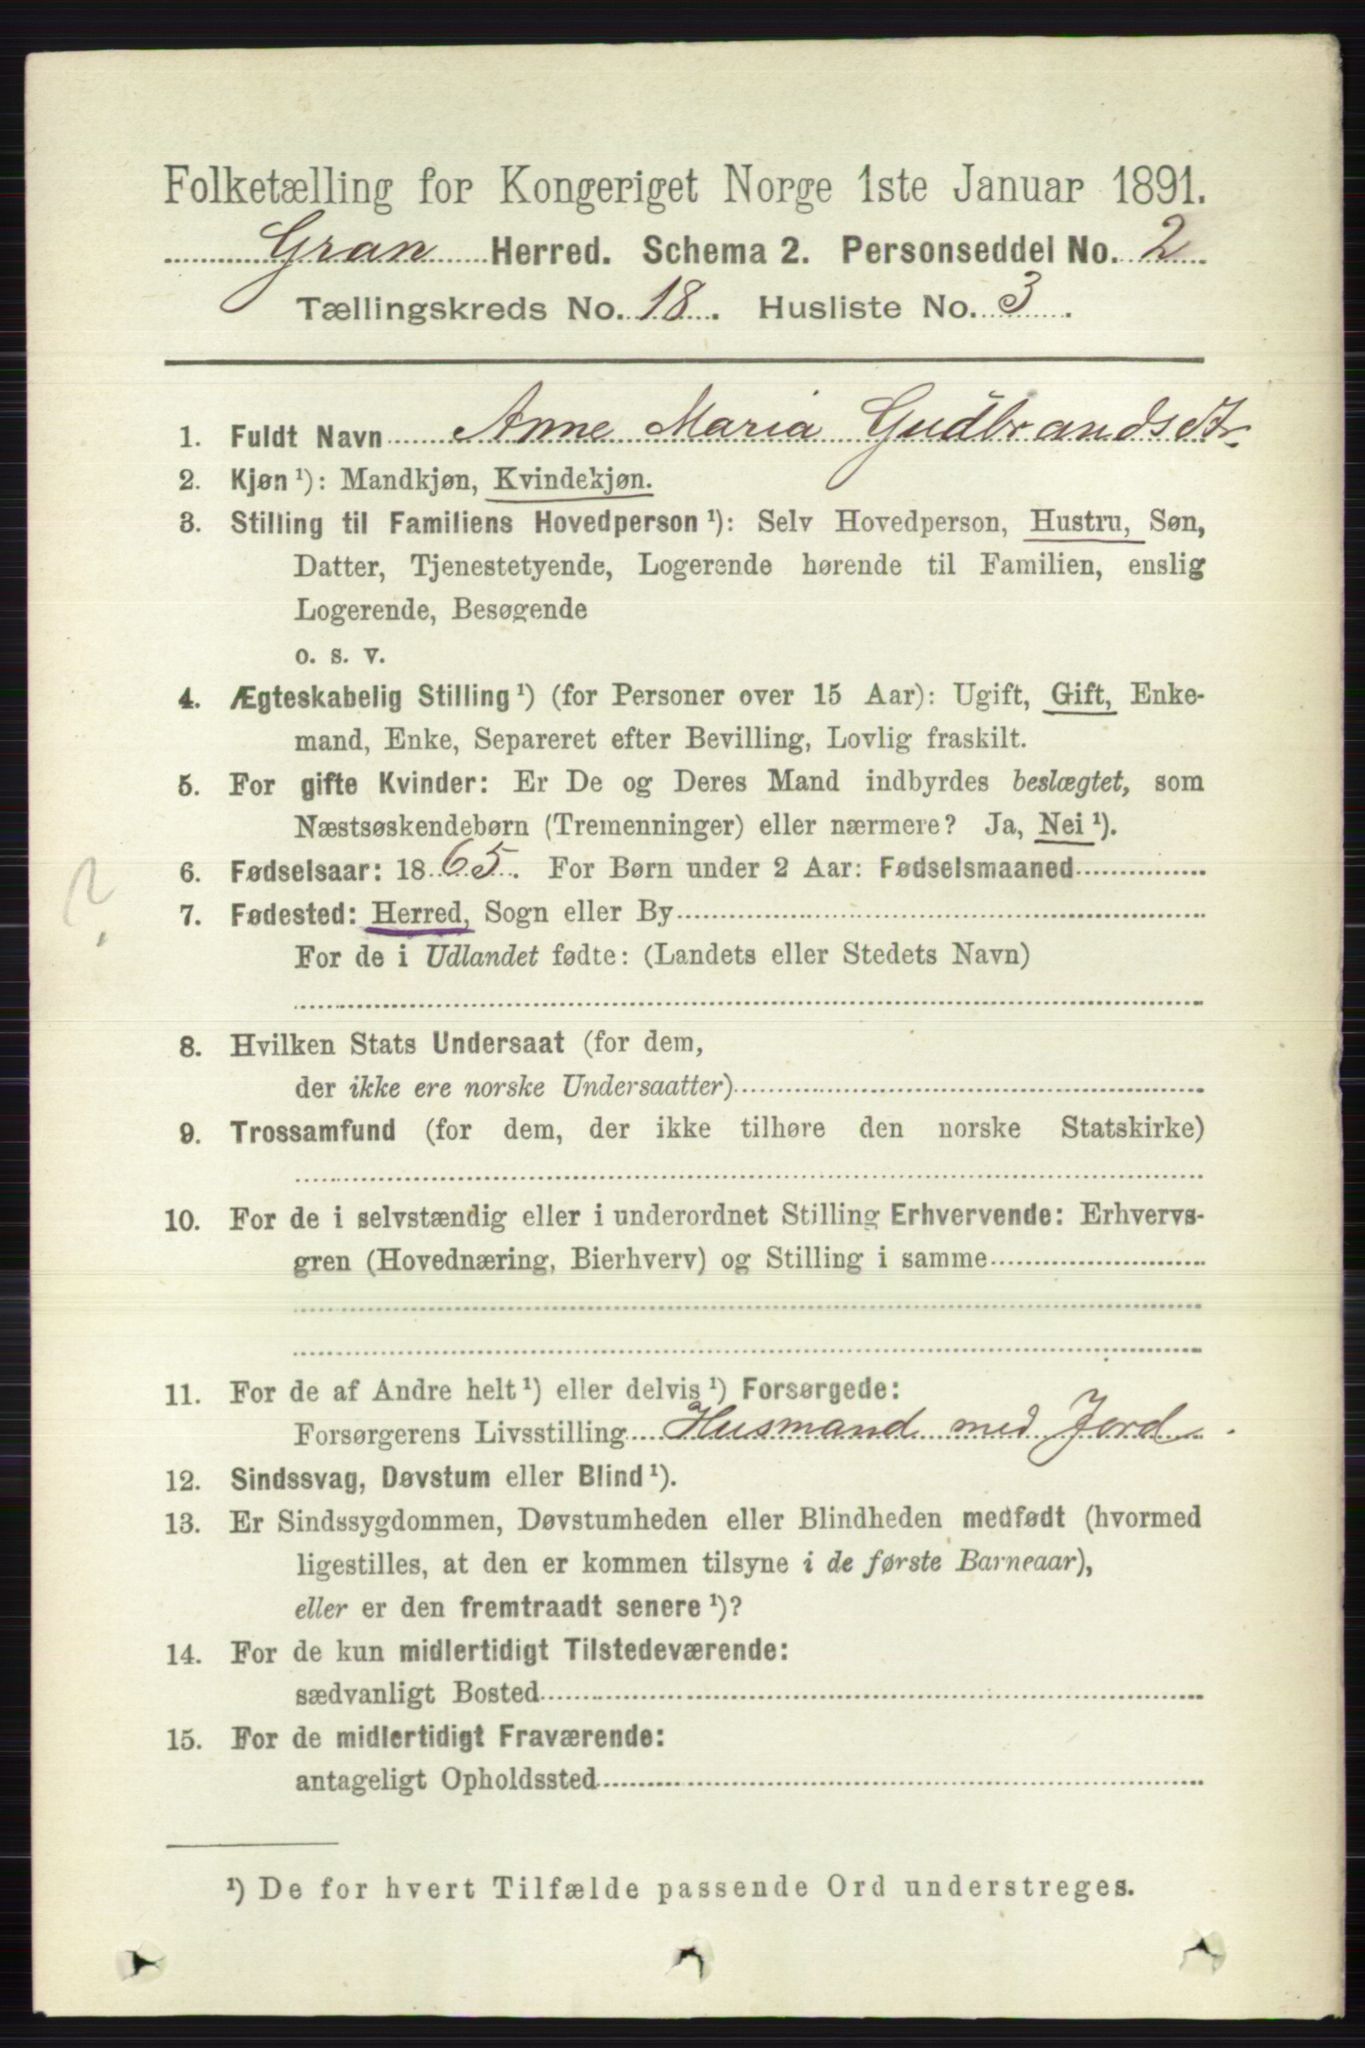 Folketælling for Kongeriget Norge 1ste Januar 1891.
Gran Herred. Schema 2. Personseddel No. 2
Tællingskreds No. 18. Husliste No. 3.
1. Fuldt Navn Anne Maria Gudbrandsdtr
2. Kjøn ¹): Mandkjøn, Kvindekjøn.
3. Stilling til Familiens Hovedperson ¹): Selv Hovedperson, Hustru, Søn,
Datter, Tjenestetyende, Logerende hørende til Familien, enslig
Logerende, Besøgende
o. s. v.
4. Ægteskabelig Stilling ¹) (for Personer over 15 Aar): Ugift, Gift, Enke-
mand, Enke, Separeret efter Bevilling, Lovlig fraskilt.
5. For gifte Kvinder: Er De og Deres Mand indbyrdes beslægtet, som
Næstsøskendebørn (Tremenninger) eller nærmere? Ja, Nei ¹).
6. Fødselsaar: 1865. For Børn under 2 Aar: Fødselsmaaned
?
7. Fødested: Herred, Sogn eller By
For de i Udlandet fødte: (Landets eller Stedets Navn)
8. Hvilken Stats Undersaat (for dem,
der ikke ere norske Undersaatter)
9. Trossamfund (for dem, der ikke tilhøre den norske Statskirke)
10. For de i selvstændig eller i underordnet Stilling Erhvervende: Erhvervs-
gren (Hovednæring, Bierhverv) og Stilling i samme
11. For de af Andre helt ¹) eller delvis ¹) Forsørgede:
Forsørgerens Livsstilling Husmand med Jord.
12. Sindssvag, Døvstum eller Blind ¹).
13. Er Sindssygdommen, Døvstumheden eller Blindheden medfødt (hvormed
ligestilles, at den er kommen tilsyne i de første Barneaar),
eller er den fremtraadt senere ¹)?
14. For de kun midlertidigt Tilstedeværende:
sædvanligt Bosted
15. For de midlertidigt Fraværende:
antageligt Opholdssted
¹) De for hvert Tilfælde passende Ord understreges.